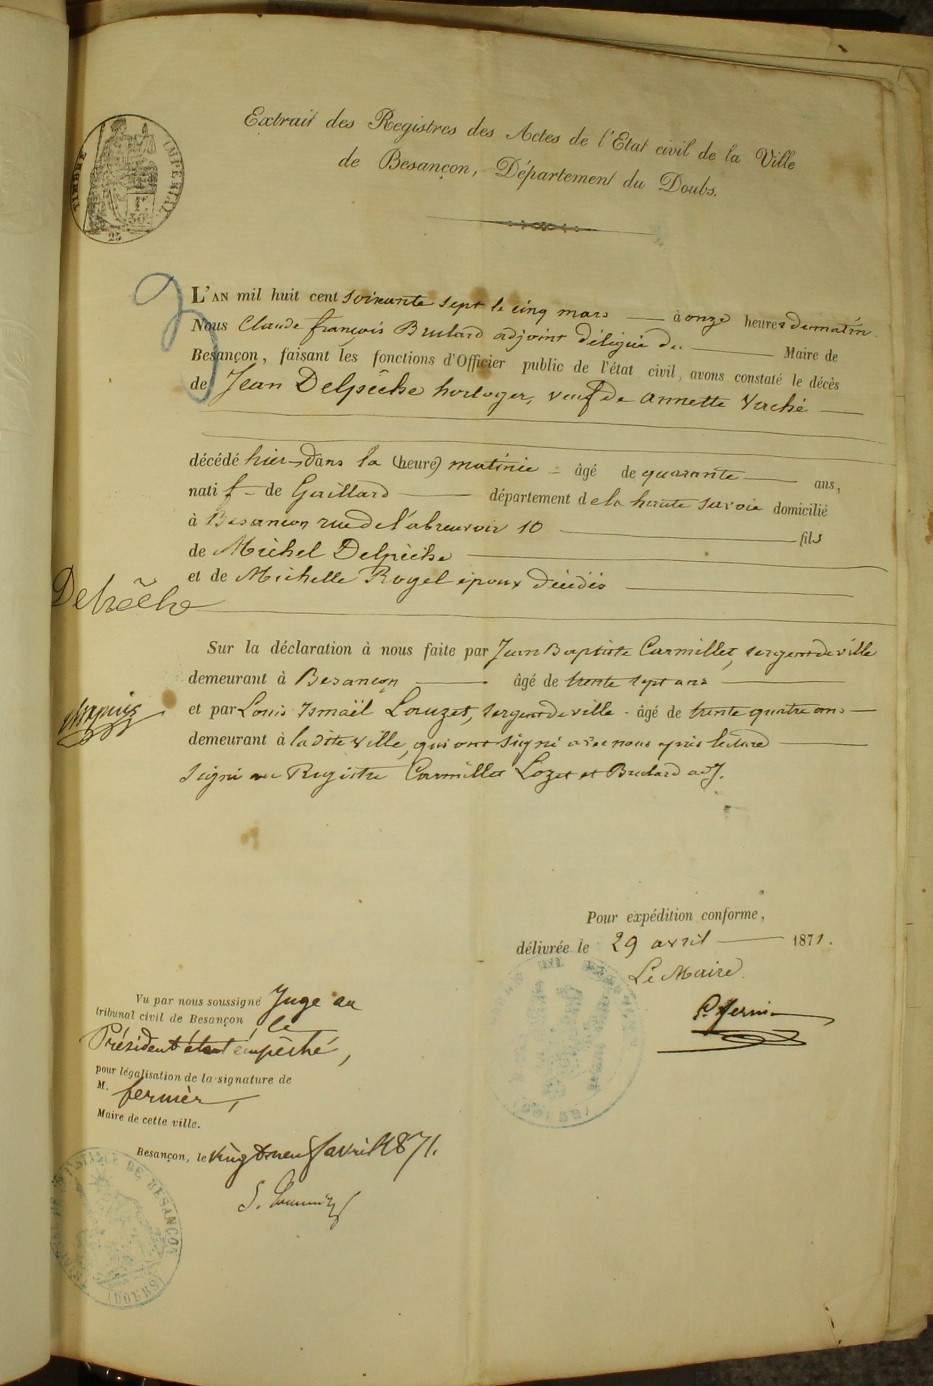 Extrait des Registres des Actes de l'Etat civil de la Ville
de Besançon, Département du Doubs.
TIMBRE IMPÉRIAL
25
L'AN mil huit cent soixante sept le cinq mars à onze heures du matin
Nous Claude françois Brulard adjoint délégué du Maire de
Besançon, faisant les fonctions d'Officier public de l'état civil, avons constaté le décès
de Jean Delpêche horloger, veuf de Annette Vaché
décédé hier dans la (heure) matinée âgé de quarante ans,
natif de Gaillard département de la haute Savoie domicilié
à Besançon rue de l'abreuvoir 10 fils
de Michel Delpêche
et de Michelle Rogel époux décédés
Sur la déclaration à nous faite par Jean Baptiste Carmillet, sergent de ville
demeurant à Besançon âgé de trente sept ans
et par Louis Ismaël Louzet, sergent de ville âgé de trente quatre ans
demeurant à la dite ville, qui ont signé avec nous après lecture
Signé au Registre Carmillet Lozet et Brulard adj.
Pour expédition conforme,
délivrée le 29 avril 1871.
Le Maire
Vu par nous soussigné Juge au
tribunal civil de Besançon le
Président étant empêché,
pour légalisation de la signature de
M. fernier,
Maire de cette ville.
Besançon, le vingt neuf avril 1871.